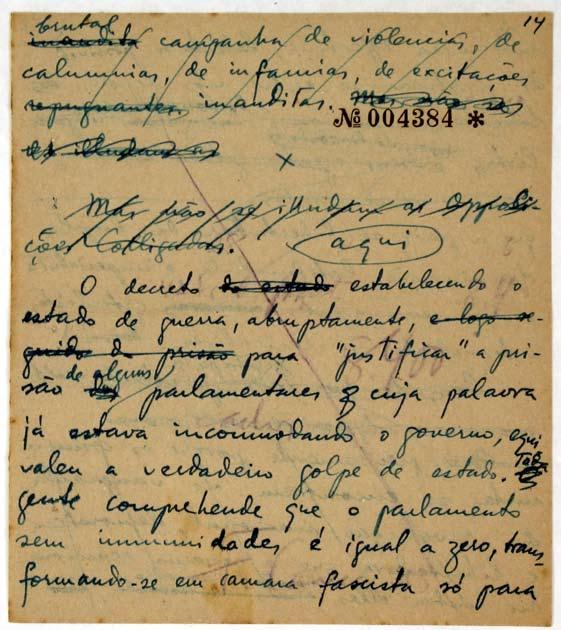 14
brutal
inaudita campanha de violencias, de
calumnias, de infamias, de excitações
repugnantes inauditas. Mas não se
Nº 004384 *
illudam as
x
Mas não se illudam as Opposi-
ções Colligadas. aqui
O decreto do estado estabelecendo o
estado de guerra, abruptamente, e logo se-
guido da prisão para "justificar" a pri-
são de alguns parlamentares cuja palavra
já estava incommodando o governo, equi
valeu a verdadeiro golpe de estado. Toda
gente comprehende que o parlamento
sem immunidades é igual a zero, trans-
formando-se em camara fascista só para